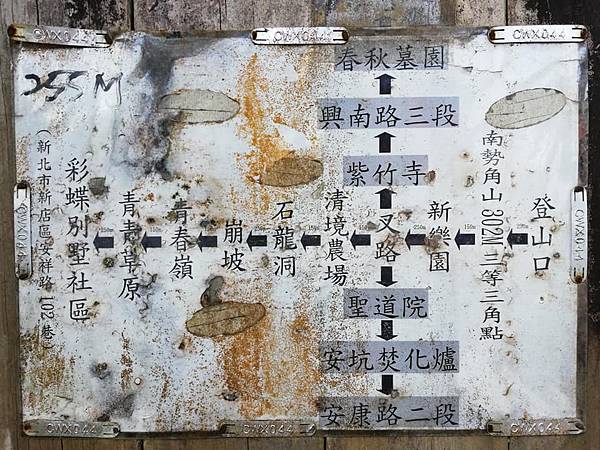 CWX044
CWX044
CWX044
255M
春秋墓園
興南路三段
紫竹寺
登山口
南勢角山302M三等三角點
新樂園
叉路
清境農場
石龍洞
崩坡
青春嶺
青青草原
彩蝶別墅社區
(新北市新店區安祥路102巷)
聖道院
安坑焚化爐
安康路二段
CWX044
CWX044
CWX044
CWX044
CWX044